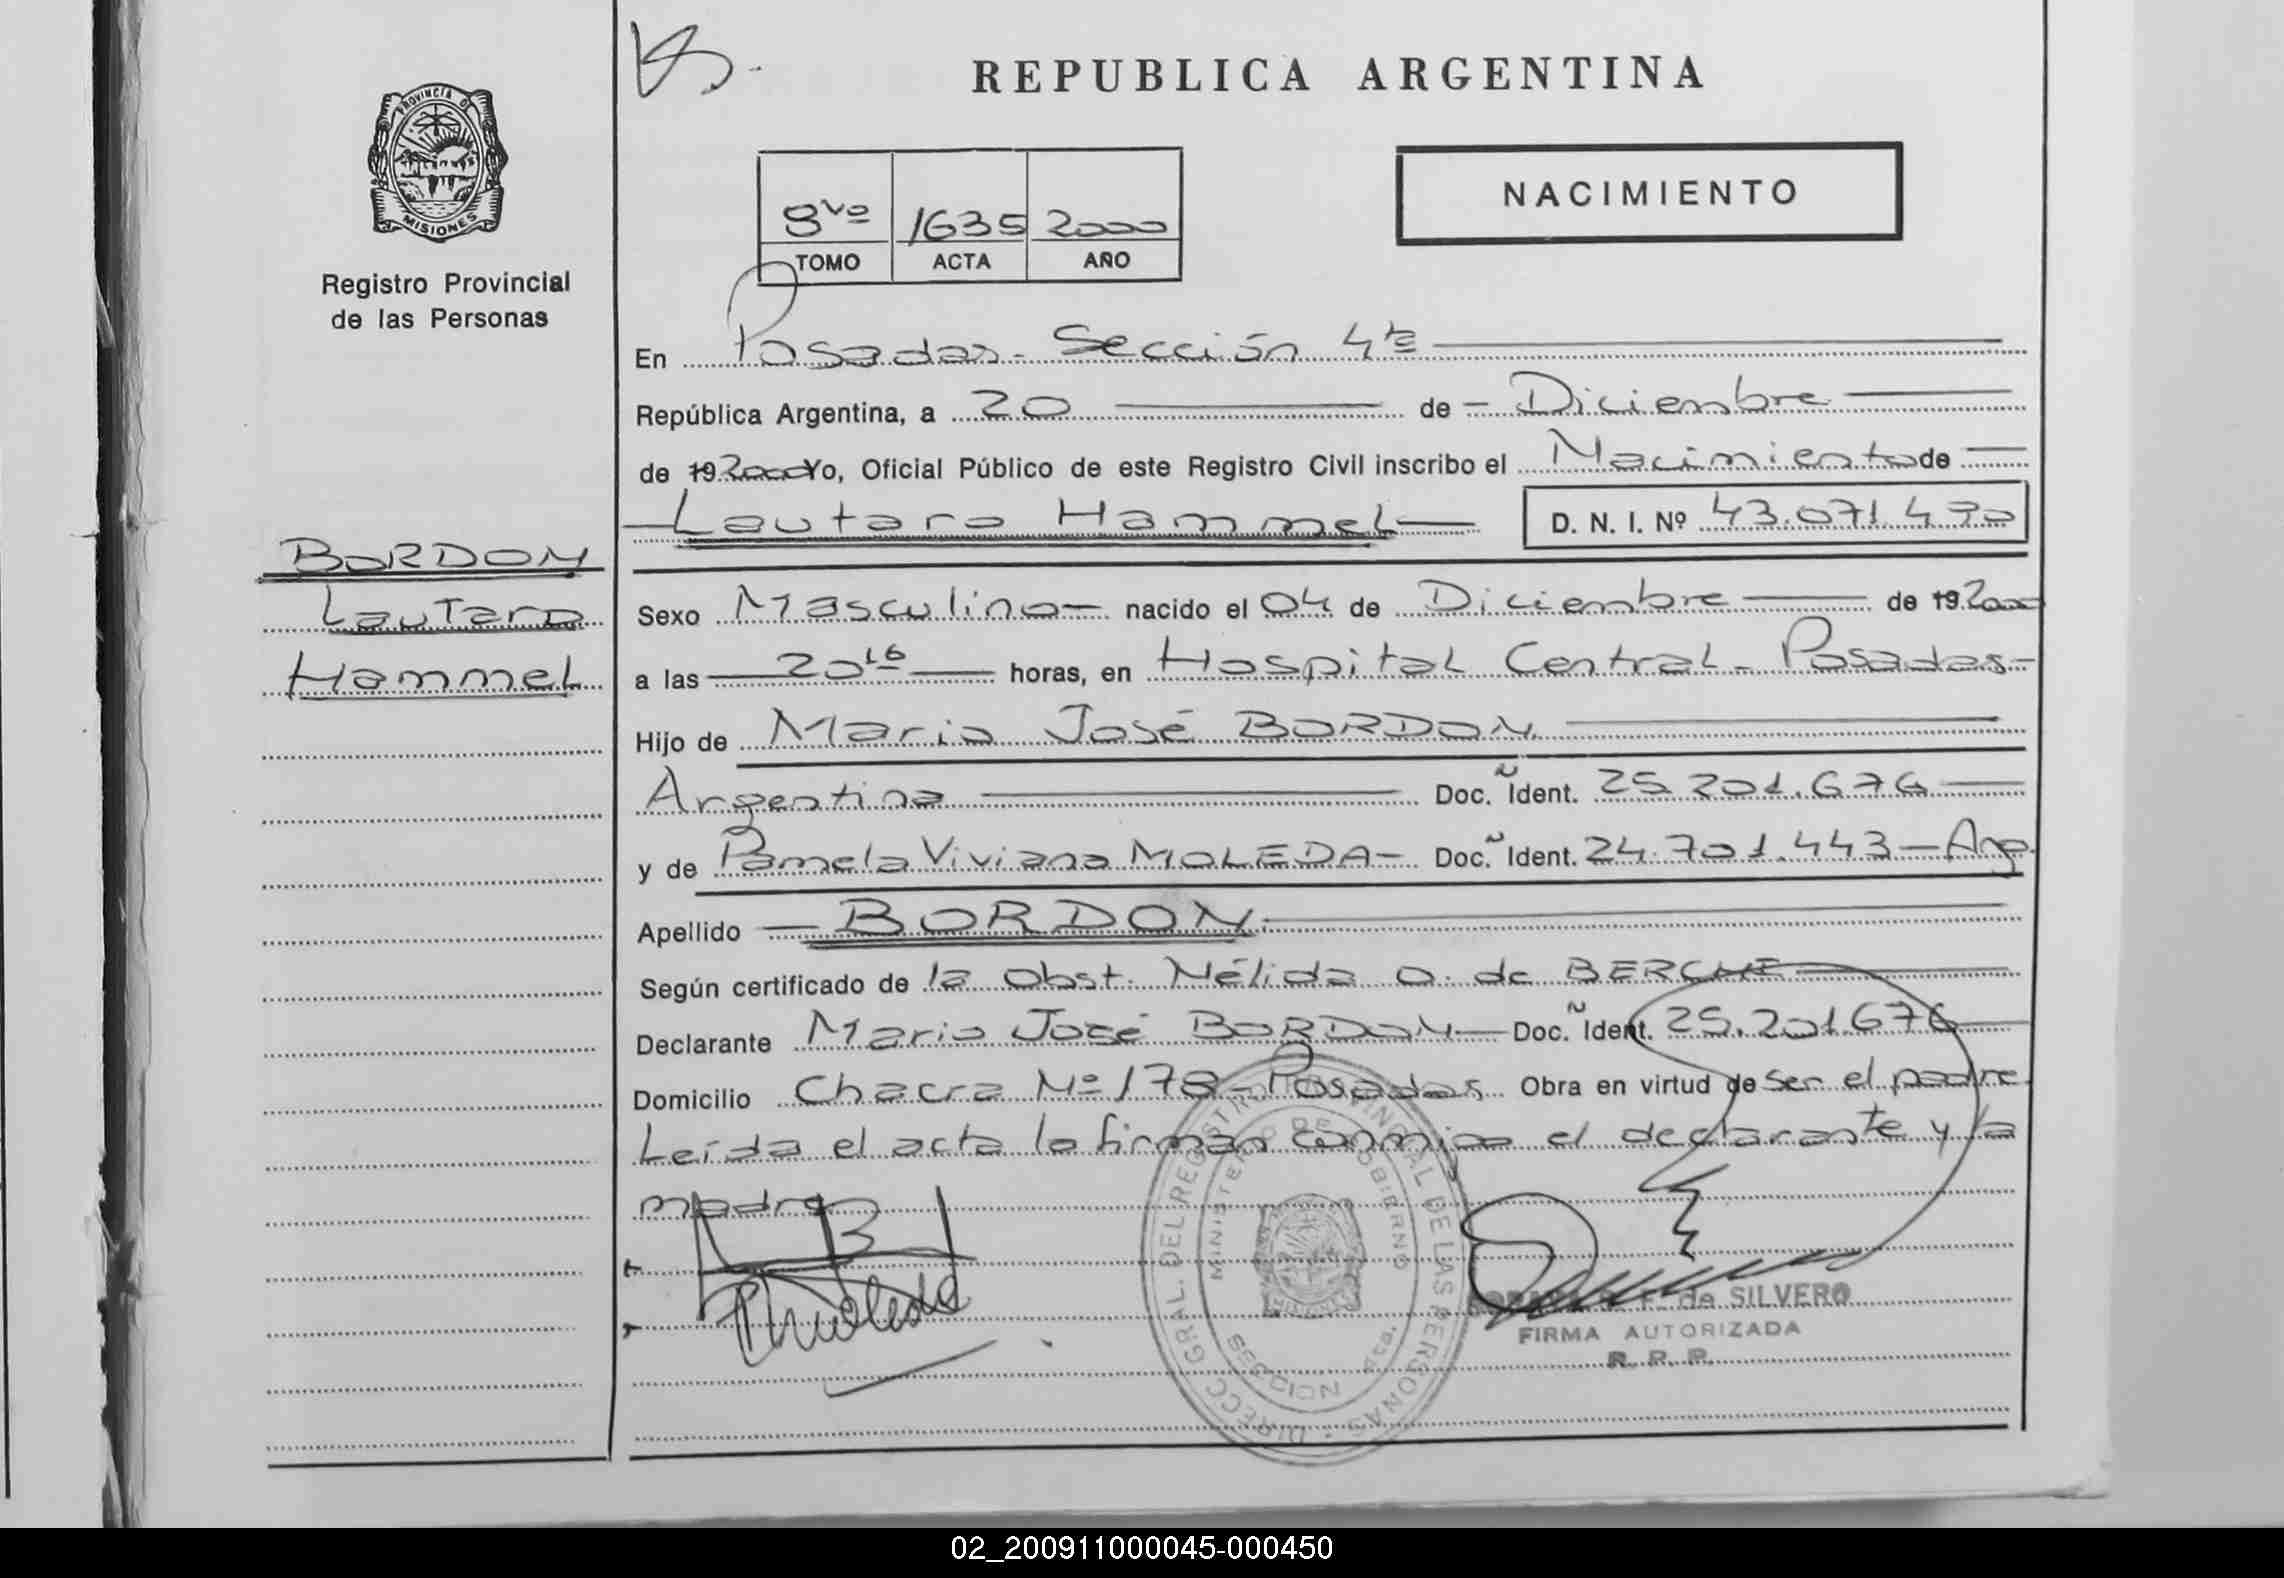 REPUBLICA ARGENTINA
PROVINCIA DE
MISIONES
Registro Provincial
de las Personas
NACIMIENTO
8vo 1635 2000
TOMO ACTA AÑO
En Posadas - Sección 4ta
República Argentina, a 20 de - Diciembre
de 19 2000 Yo, Oficial Público de este Registro Civil inscribo el Nacimiento de
Lautaro Hammel D. N. I. Nº 43.071.470
BORDON
Lautaro
Hammel
Sexo Masculino nacido el 04 de Diciembre de 19 2000
a las 20 16 horas, en Hospital Central - Posadas -
Hijo de Mario José BORDON
Argentina Doc. Ñ Ident. 25.201.676
y de Pamela Viviana MOLEDA - Doc. Ñ Ident. 24.701.443 - Arg.
Apellido - BORDON
Según certificado de la Obst. Nélida O. de BERCHE
Declarante Mario José BORDON - Doc. Ñ Ident. 25.201.676
Domicilio Chacra Nº 178 - Posadas Obra en virtud de ser el padre.
Leída el acta la firman conmigo el declarante y la
madre
DIRECC GRAL. DEL REGISTRO PROVINCIAL DE LAS PERSONAS
MINISTERIO DE GOBIERNO
SECCION
de SILVERO
FIRMA AUTORIZADA
R. P. P.
02_200911000045-000450